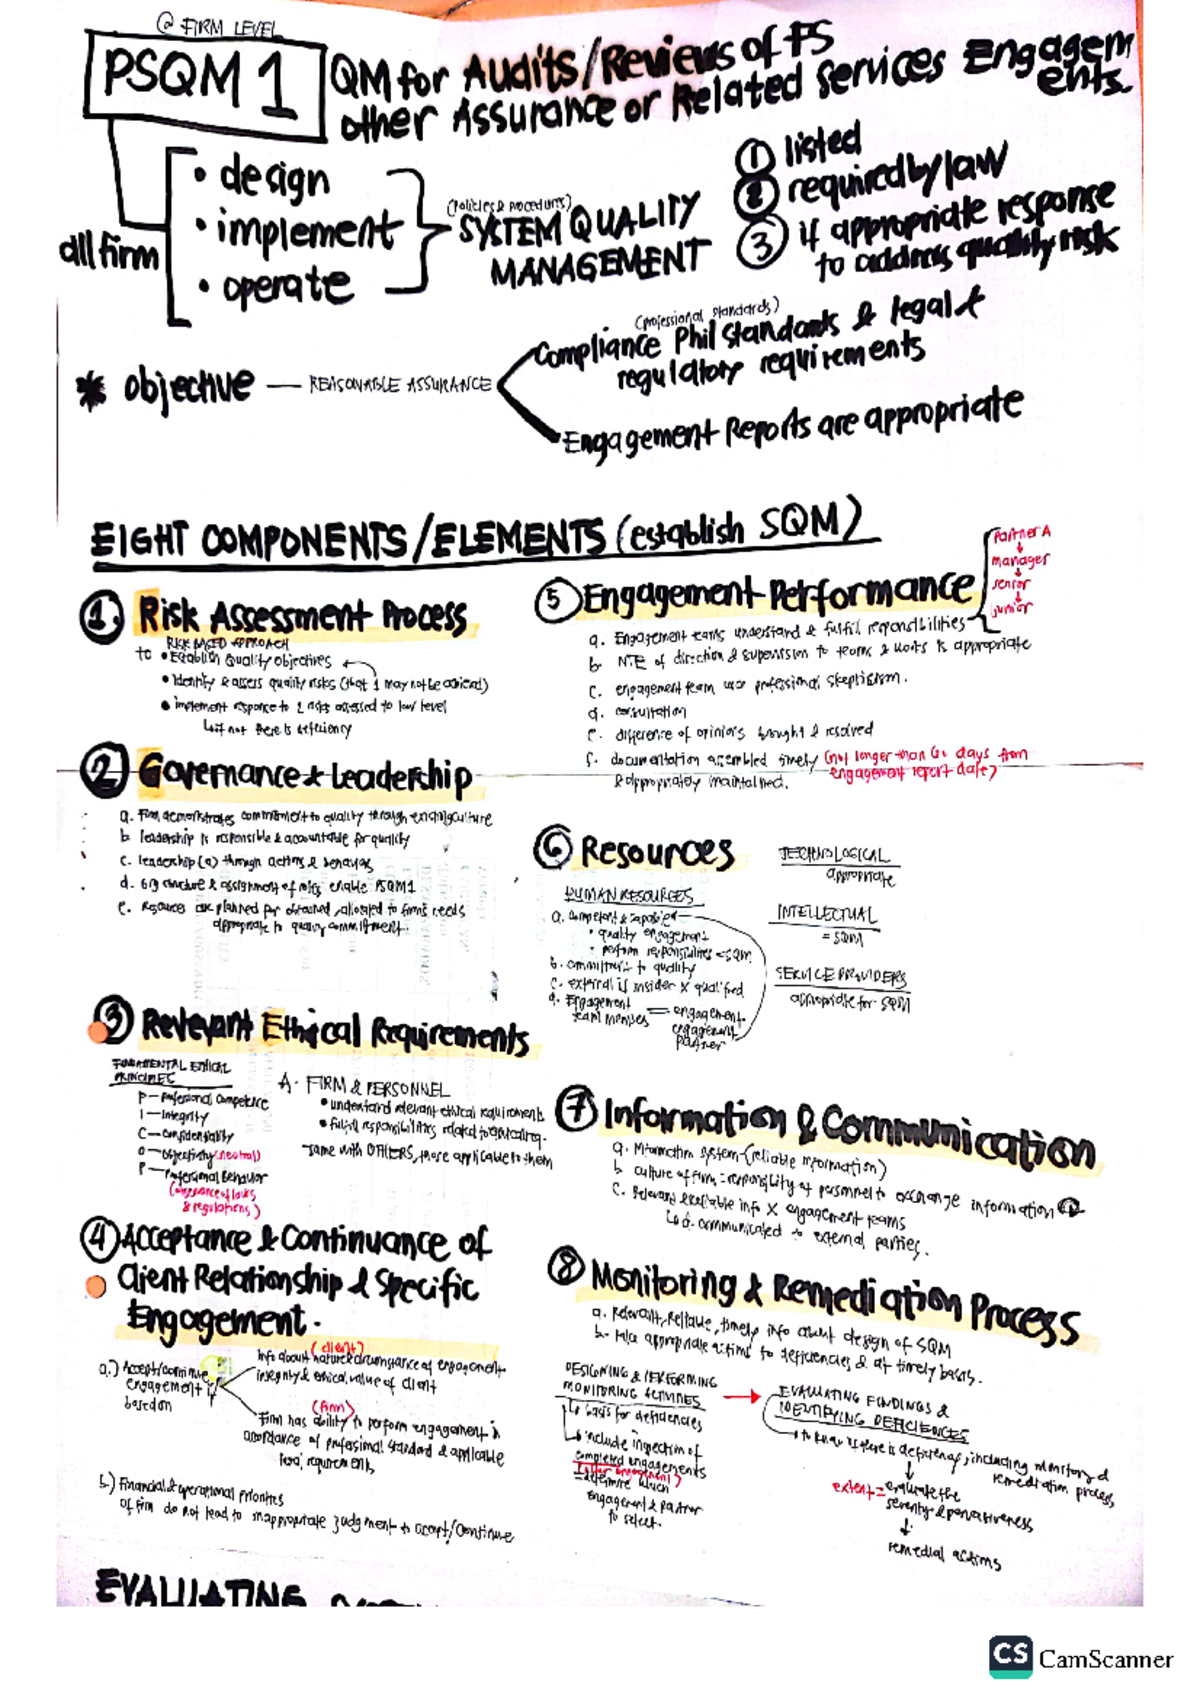 @ FIRM LEVEL
PSQM 1
QM for Audits/Reviews of FS
other Assurance or Related Services Engagements.
all firm
• design
• implement
• operate
(policies & procedures)
SYSTEM QUALITY
MANAGEMENT
① listed
② required by law
③ if appropriate response
to address quality risk
* objective — REASONABLE ASSURANCE
(professional standards)
Compliance Phil Standards & legal &
regulatory requirements
Engagement Reports are appropriate
EIGHT COMPONENTS/ELEMENTS (establish SQM)
1. Risk Assessment Process
RISK BASED APPROACH
to • Establish Quality objectives
• Identify & assess quality risks (that 1 may not be achieved)
• implement response to 2 risks assessed to low level
↳ if not there is deficiency
② Governance & Leadership
a. Firm demonstrates commitment to quality through existing culture
b. leadership is responsible & accountable for quality
c. leadership (a) through actions & behaviors
d. org structure & assignment of roles enable PSQM1
e. Resources are planned for obtained, allocated to firm's needs
appropriate to quality commitment.
③ Relevant Ethical Requirements
FUNDAMENTAL ETHICAL
PRINCIPLES
P — Professional Competence
I — Integrity
C — Confidentiality
O — Objectivity (neutral)
P — Professional Behavior
(observance of laws
& regulations)
A. FIRM & PERSONNEL
• understand relevant ethical requirements
• fulfill responsibilities related to ethical req.
same with OTHERS, those applicable to them
④ Acceptance & Continuance of
Client Relationship & Specific
Engagement.
a.) Accept/continue
engagement if
based on
(client)
info about nature & circumstance of engagement
integrity & ethical value of client
(firm)
Firm has ability to perform engagement in
accordance of professional standard & applicable
legal requirements
b.) Financial & operational priorities
of firm do not lead to inappropriate judgment to accept/continue
⑤ Engagement Performance
Partner A
↓
manager
↓
senior
↓
junior
a. Engagement teams understand & fulfill responsibilities
b. NTE of direction & supervision to teams & works is appropriate
c. engagement team use professional skepticism.
d. consultation
e. difference of opinions brought & resolved
f. documentation assembled timely (not longer than 60 days from
engagement report date)
& appropriately maintained.
⑥ Resources
HUMAN RESOURCES
a. competent & capable
• quality engagement
• perform responsibilities = SQM
b. commitment to quality
c. external if insider X qualified
d. Engagement
team members = engagement
engagement
partner
TECHNOLOGICAL
appropriate
INTELLECTUAL
= SQM
SERVICE PROVIDERS
appropriate for SQM
⑦ Information & Communication
a. Information system - (reliable information)
b. culture of firm = responsibility of personnel to exchange information
c. relevant & reliable info X engagement teams
↳ d. communicated to external parties.
⑧ Monitoring & Remediation Process
a. Relevant, Reliable, timely info about design of SQM
b. take appropriate actions to deficiencies & at timely basis.
DESIGNING & PERFORMING
MONITORING ACTIVITIES
↳ basis for deficiencies
↳ include inspection of
completed engagements
(after engagement)
= determine which
engagement & partner
to select.
EVALUATING FINDINGS &
IDENTIFYING DEFICIENCES
→ to know if there is deficiency, including monitory &
remediation process
↓
extent = evaluate the
severity & pervasiveness
↓
remedial actions
EVALUATING
CS CamScanner